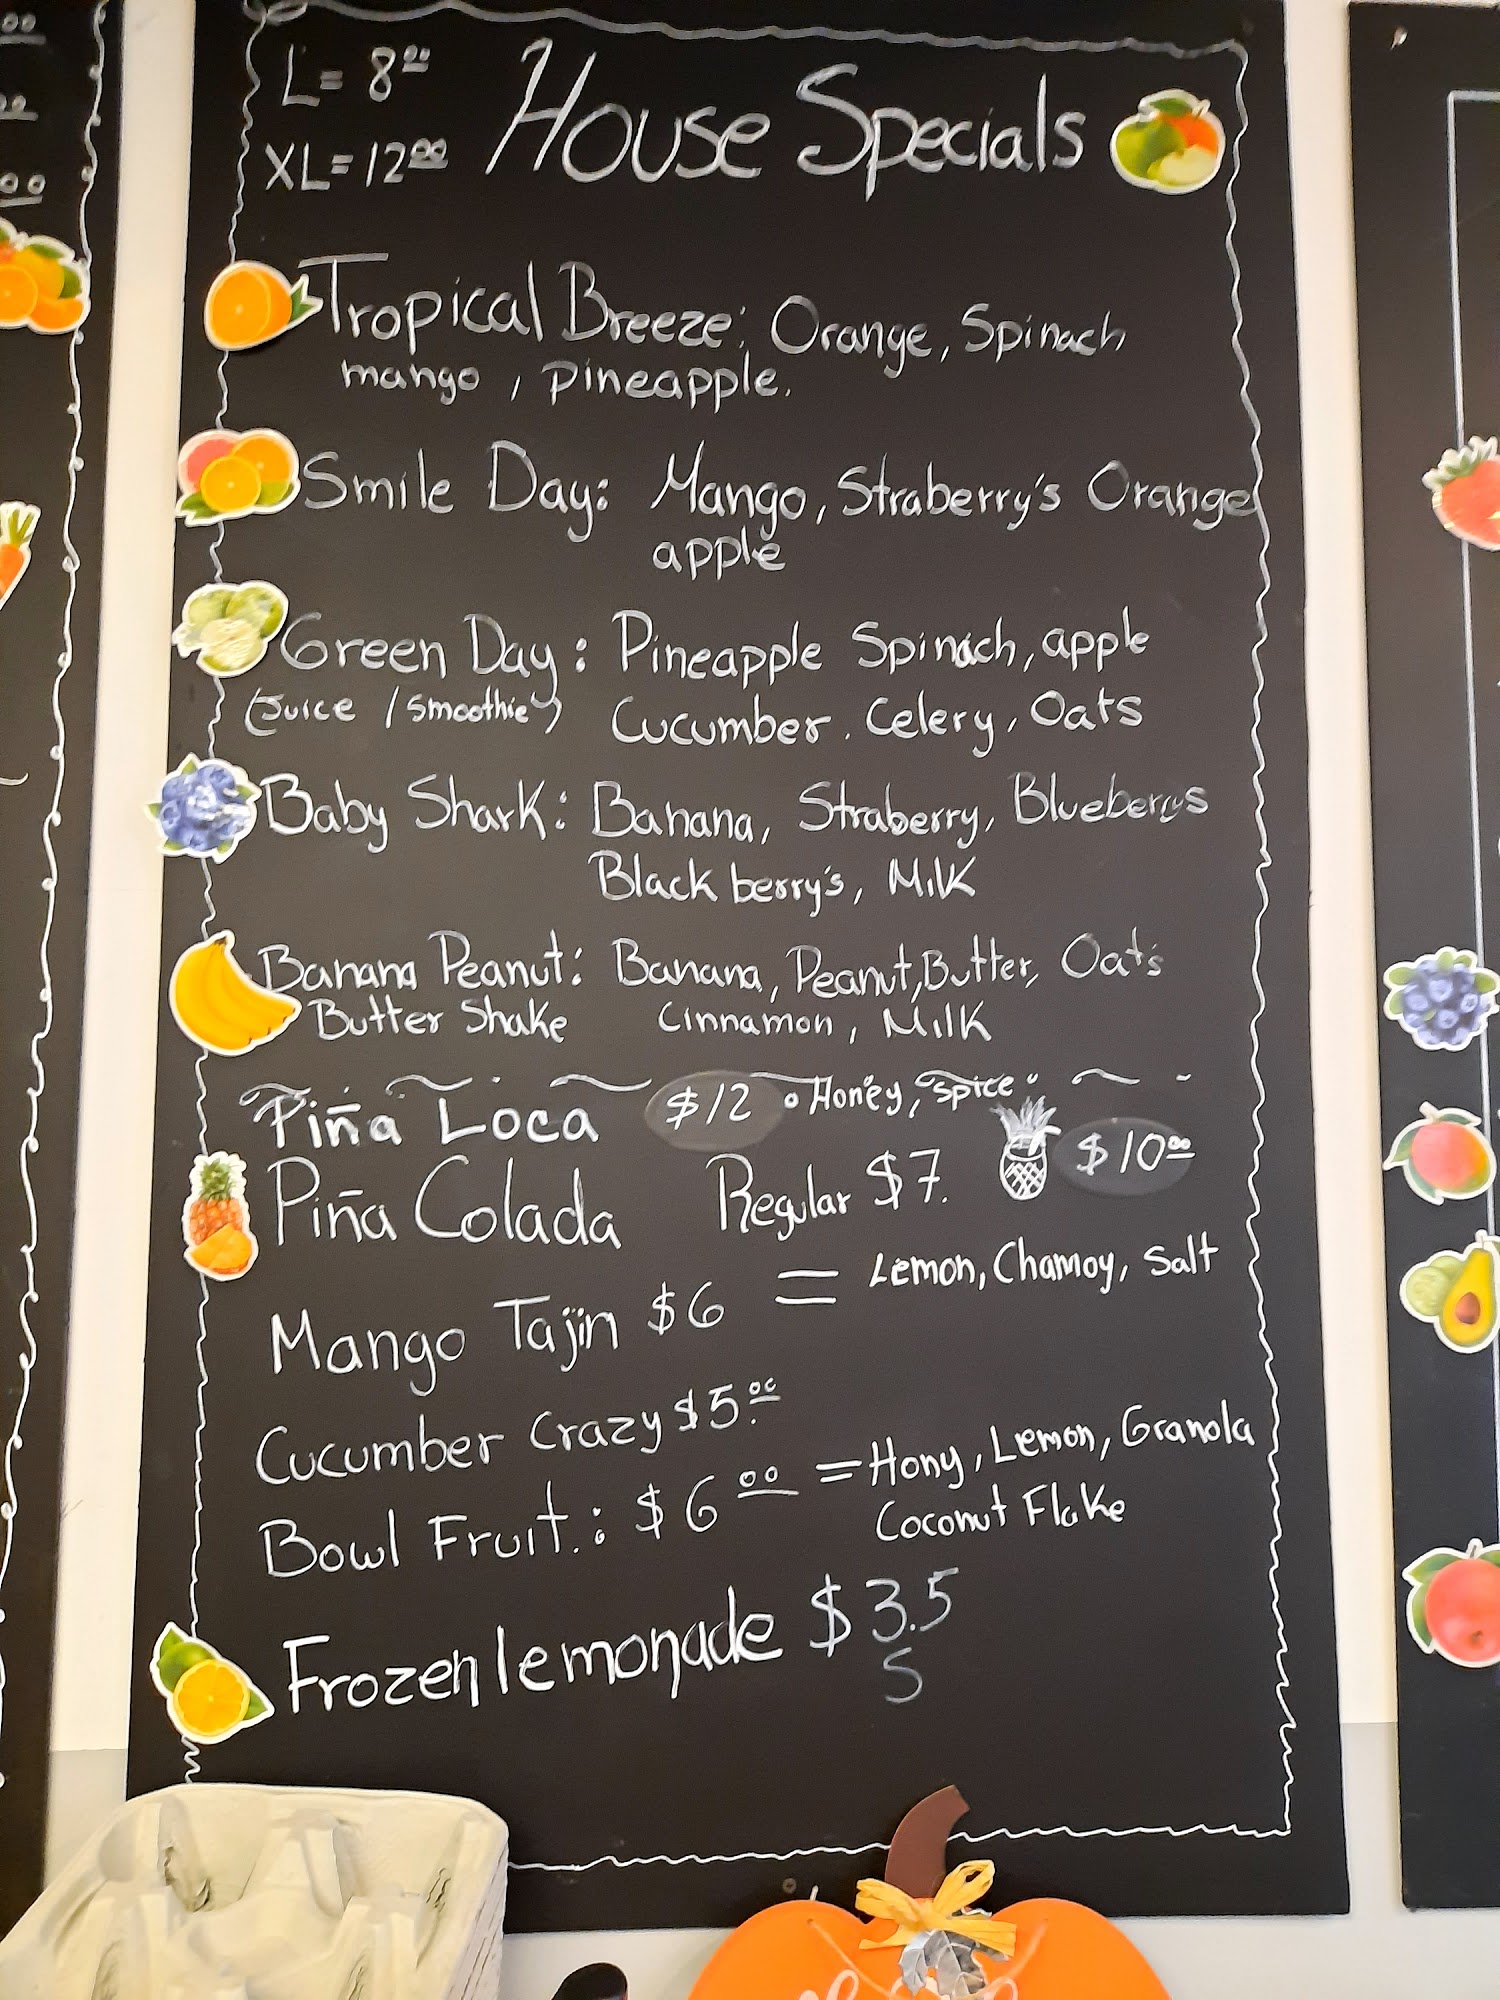 L= 8.00
XL= 12.00
House Specials
Tropical Breeze: Orange, Spinach
mango, pineapple.
Smile Day: Mango, Straberry's Orange
apple
Green Day: Pineapple Spinach, apple
(Juice / Smoothie) Cucumber. Celery, Oats
Baby Shark: Banana, Straberry, Blueberrys
Black berry's, Milk
Banana Peanut: Banana, Peanut, Butter, Oats
Butter Shake Cinnamon, Milk
Piña Loca $12 • Honey, Spice
Piña Colada Regular $7. $10.00
Mango Tajin $6 = Lemon, Chamoy, Salt
Cucumber Crazy $5.00
Bowl Fruit.: $6.00 = Hony, Lemon, Granola
Coconut Flake
Frozen lemonade $3.5
5